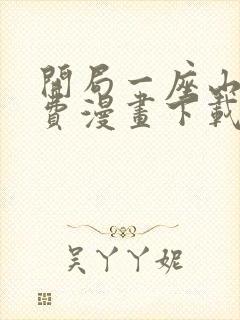 開局一座山
費漫畫下載
吴丫丫妮